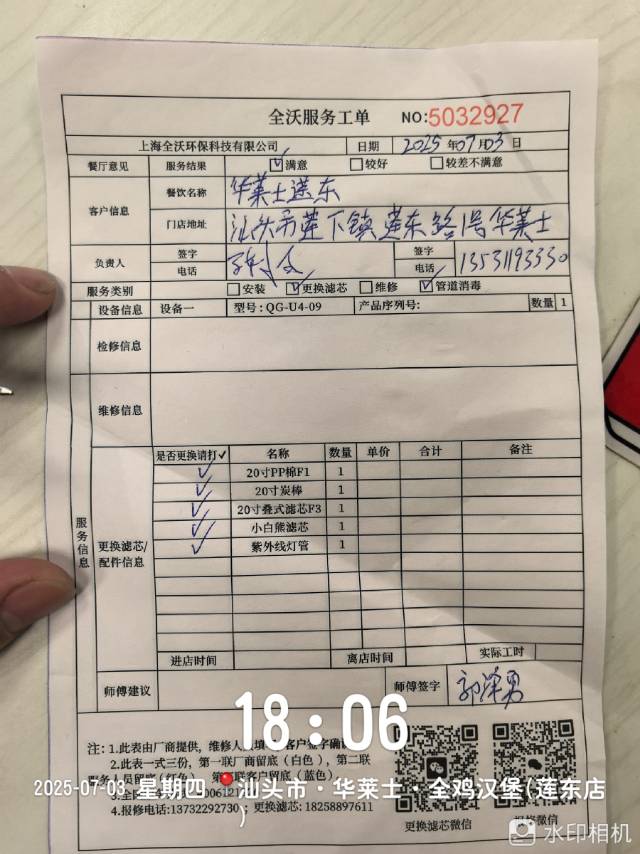 全沃服务工单 NO:5032927
上海全沃环保科技有限公司 日期 2025年07月03日
餐厅意见 服务结果 ☑满意 □较好 □较差不满意
客户信息 餐饮名称 华莱士莲东
门店地址 汕头市莲下镇莲东路口号华莱士
负责人 签字 签字
电话 电话 13531193330
服务类别 □安装 ☑更换滤芯 □维修 ☑管道消毒
设备信息 设备一 型号:QG-U4-09 产品序列号: 数量 1
检修信息
维修信息
服务信息
更换滤芯/配件信息
是否更换请打✓ 名称 数量 单价 合计 备注
✓ 20寸PP棉F1 1
✓ 20寸炭棒 1
✓ 20寸叠式滤芯F3 1
✓ 小白熊滤芯 1
✓ 紫外线灯管 1
进店时间 离店时间 实际工时
师傅建议 师傅签字 郭泽勇
18:06
注:1.此表由厂商提供,维修人 填 客户签字确
2.此表一式三份,第一联厂商留底(白色),第二联
服务人员留底(红色) 第 联客户留底(蓝色)
2025-07-03 星期四 汕头市·华莱士·全鸡汉堡(莲东店
)
4.报修电话:13732292730;更换滤芯:18258897611
更换滤芯微信 报修微信
水印相机